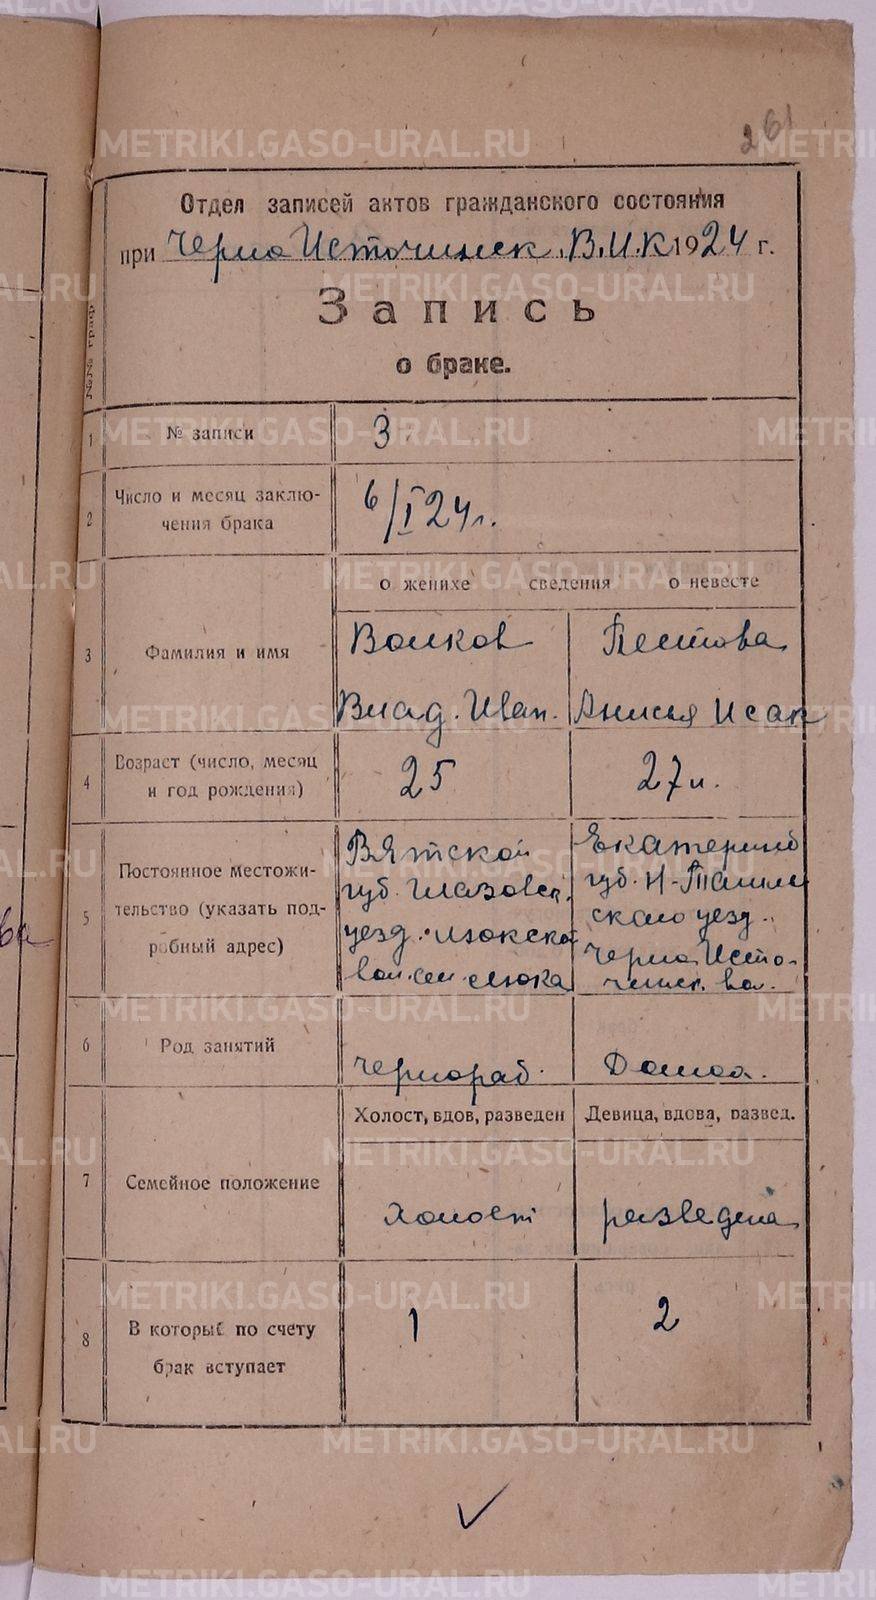 261
Отдел записей актов гражданского состояния
при Черно Источинск. В.И.К 1924 г.
Запись
о браке.
№№ граф
1 № записи 3
2 Число и месяц заклю-
чения брака 6/I 24 г.
о женихе сведения о невесте
3 Фамилия и имя Волков Пестова
Влад. Иван. Анисья Исак
4 Возраст (число, месяц
и год рождения) 25 27 л.
5 Постоянное местожи-
тельство (указать под-
робный адрес)
Вятской
губ. Глазовск.
уезд. Люкской
вол. сел. Люка
Екатеринб
губ. Н-Тагиль
ского уезд.
Черно Исто-
чинск. вол.
6 Род занятий чернораб. Домох.
Холост, вдов, разведен Девица, вдова, развед.
7 Семейное положение холост разведена
8 В который по счету
брак вступает 1 2
METRIKI.GASO-URAL.RU